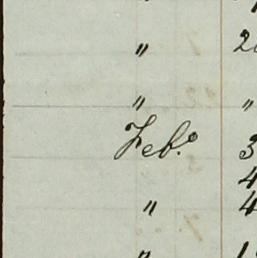 "
" 2
" "
Feb.º 3
4
" 4
"